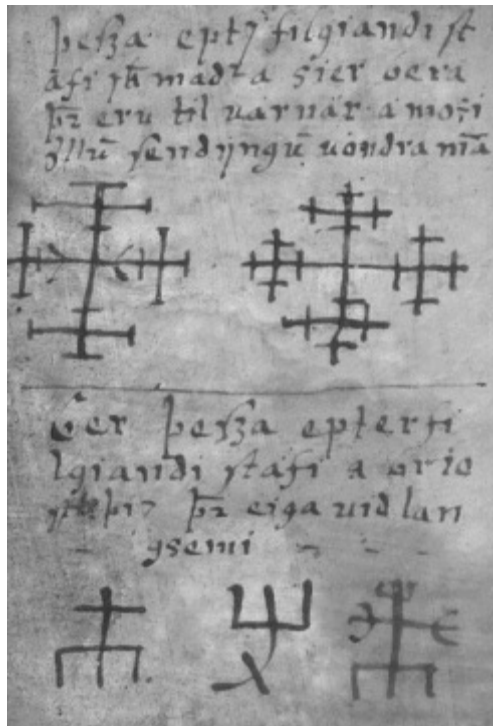 þesza ept filgiandi st
afi sk̄ madr a sier bera
þr̄ eru til uarnar a moti
öllū sendijngū uöndra m̄a
Ber þesza epterfi
lgiandi stafi a brio
þr̄ eiga uid lan
gsemi